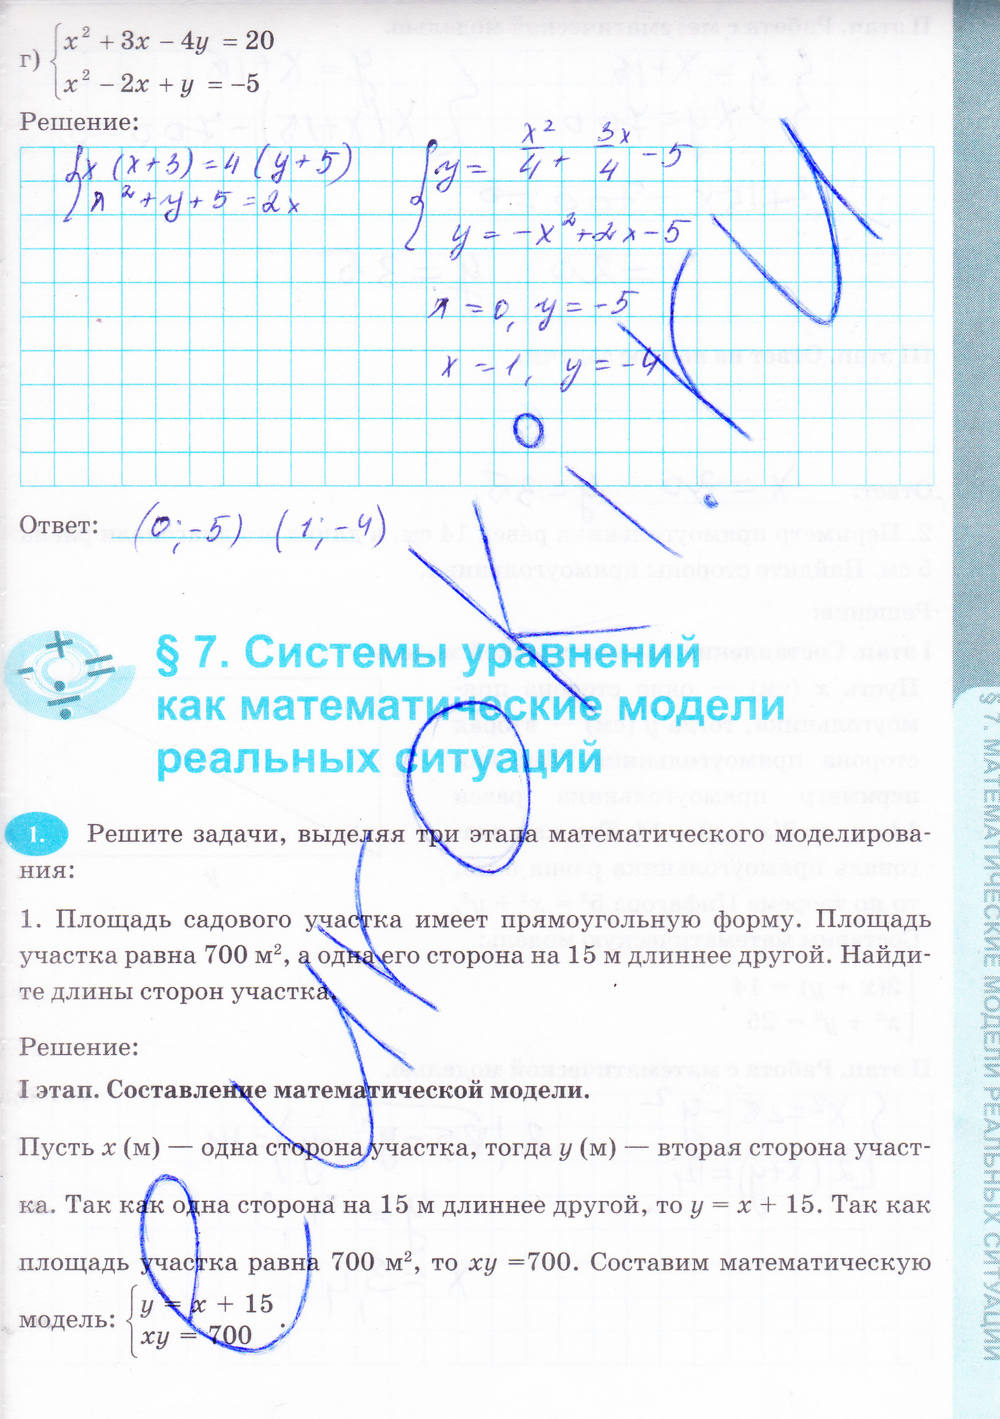 г) { x² + 3x − 4y = 20
x² − 2x + y = −5
Решение:
{ x (x+3) = 4 (y+5)
x² + y + 5 = 2x
{ y = x²/4 + 3x/4 − 5
y = −x² + 2x − 5
x = 0, y = −5
x = 1, y = −4
Ответ: (0; −5) (1; −4)
§ 7. Системы уравнений
как математические модели
реальных ситуаций
1. Решите задачи, выделяя три этапа математического моделирова-
ния:
1. Площадь садового участка имеет прямоугольную форму. Площадь
участка равна 700 м², а одна его сторона на 15 м длиннее другой. Найди-
те длины сторон участка.
Решение:
I этап. Составление математической модели.
Пусть x (м) — одна сторона участка, тогда y (м) — вторая сторона участ-
ка. Так как одна сторона на 15 м длиннее другой, то y = x + 15. Так как
площадь участка равна 700 м², то xy =700. Составим математическую
модель: { y = x + 15
xy = 700 .
§ 7. МАТЕМАТИЧЕСКИЕ МОДЕЛИ РЕАЛЬНЫХ СИТУАЦИЙ